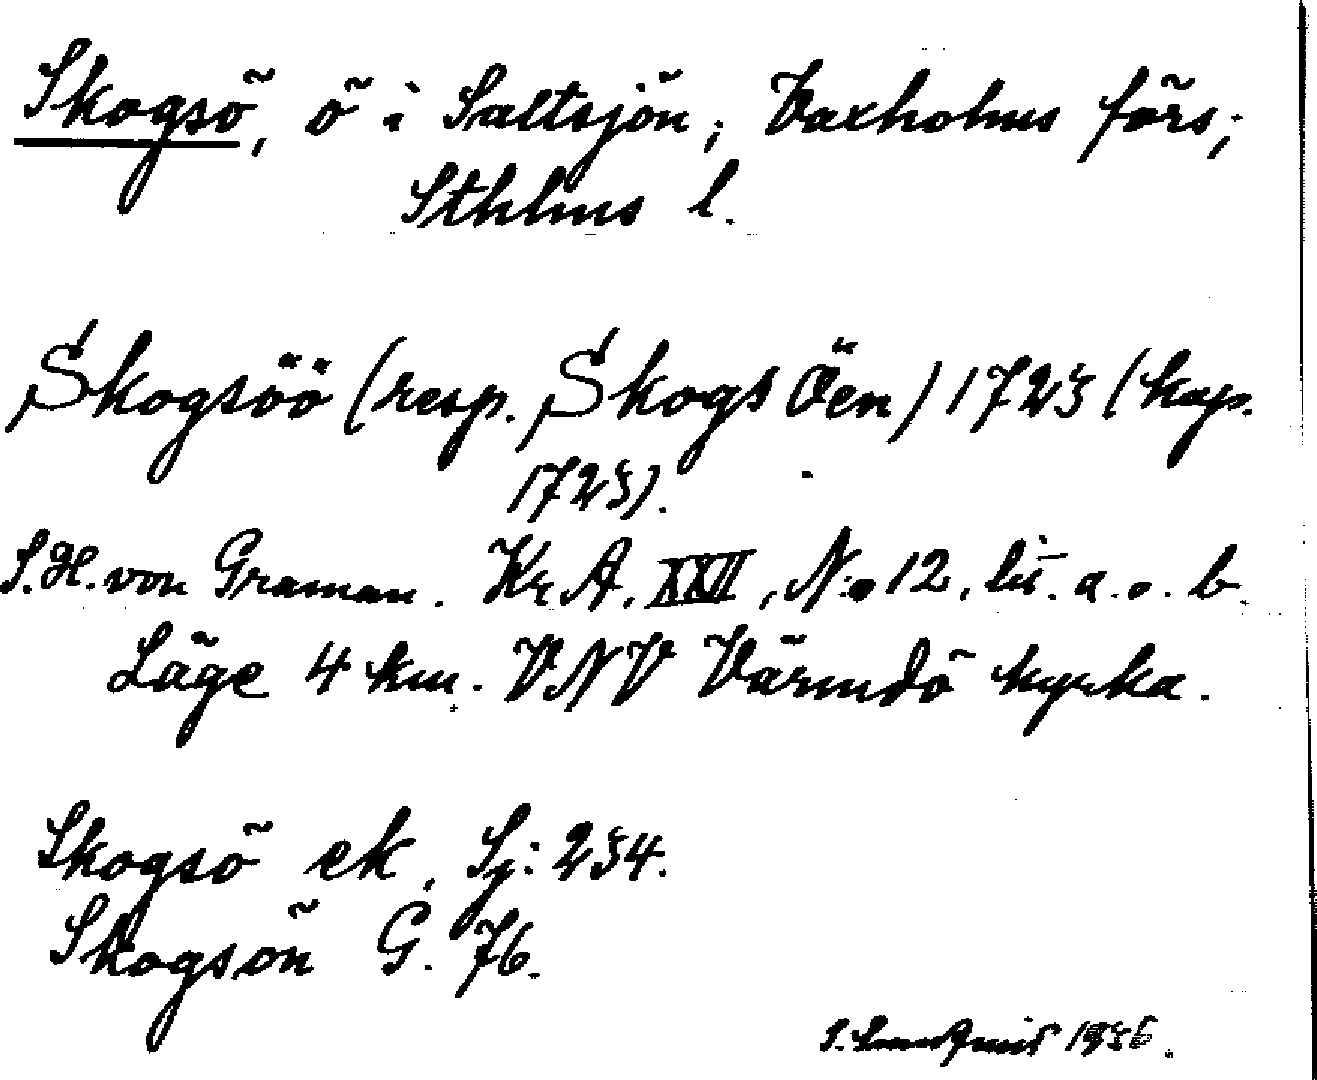 Skogsö, ö i Saltsjön; Vaxholms förs;
Sthlms l.
Skogsöö (resp. Skogs Öen) 1723 (kop.
1723).
S.H. von Graman. Kr A. XXII, No 12, lit. a. o. b
Läge 4 km. VNV Värmdö kyrka.
Skogsö ek. Sj: 234.
Skogsön G. 76.
S. 1936.